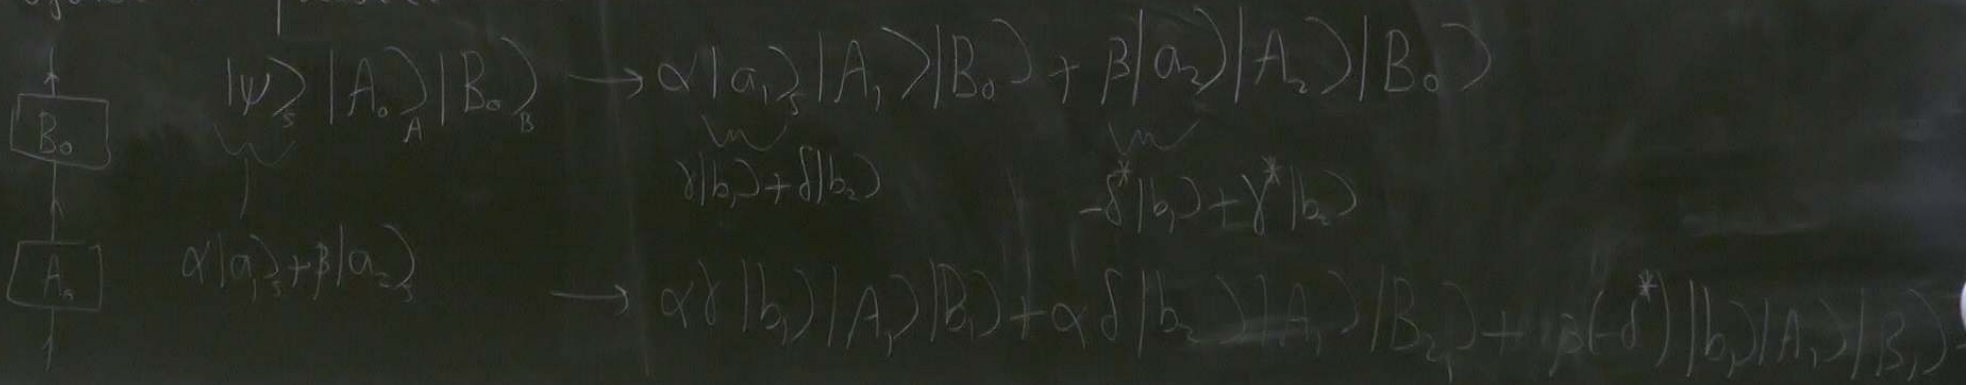 |ψ⟩_S |A₀⟩_A |B₀⟩_B → α|a₁⟩_S |A₁⟩|B₀⟩ + β|a₂⟩|A₂⟩|B₀⟩
B₀
γ|b₁⟩+δ|b₂⟩ -δ*|b₁⟩+γ*|b₂⟩
A₀ α|a₁⟩_S+β|a₂⟩_S
→ αγ|b₁⟩|A₁⟩|B₁⟩+αδ|b₂⟩|A₁⟩|B₂⟩+β(-δ*)|b₁⟩|A₂⟩|B₁⟩